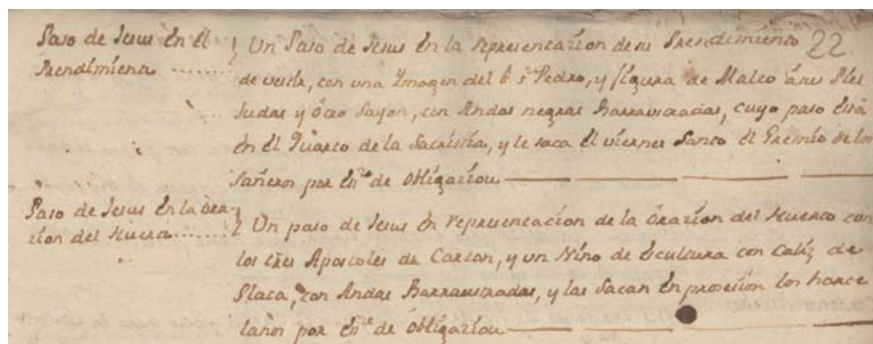 Paso de Jesus En el
Prendimiento
Un Paso de Jesus En la representazion de su Prendimiento 22
de vestir, con una Ymagen del S.r S.n Pedro, y figura de Malco â sus Pies
Judas y ôtro Sayon, con Andas negras Barnizadas, cuyo paso está
en êl Quarto de la Sacristia, y le saca êl viernes Santo êl Gremio de los
Pañeros por de obligazion
Paso de Jesus En la Ora-
zion del Huerto
Un paso de Jesus En representacion de la ôrazion del Huerto con
los tres Apostoles de Carton, y un Niño de êscultura con Caliz de
Plata, con Andas y las Sacan En prosesion los horte
lanos por de ôbligazion